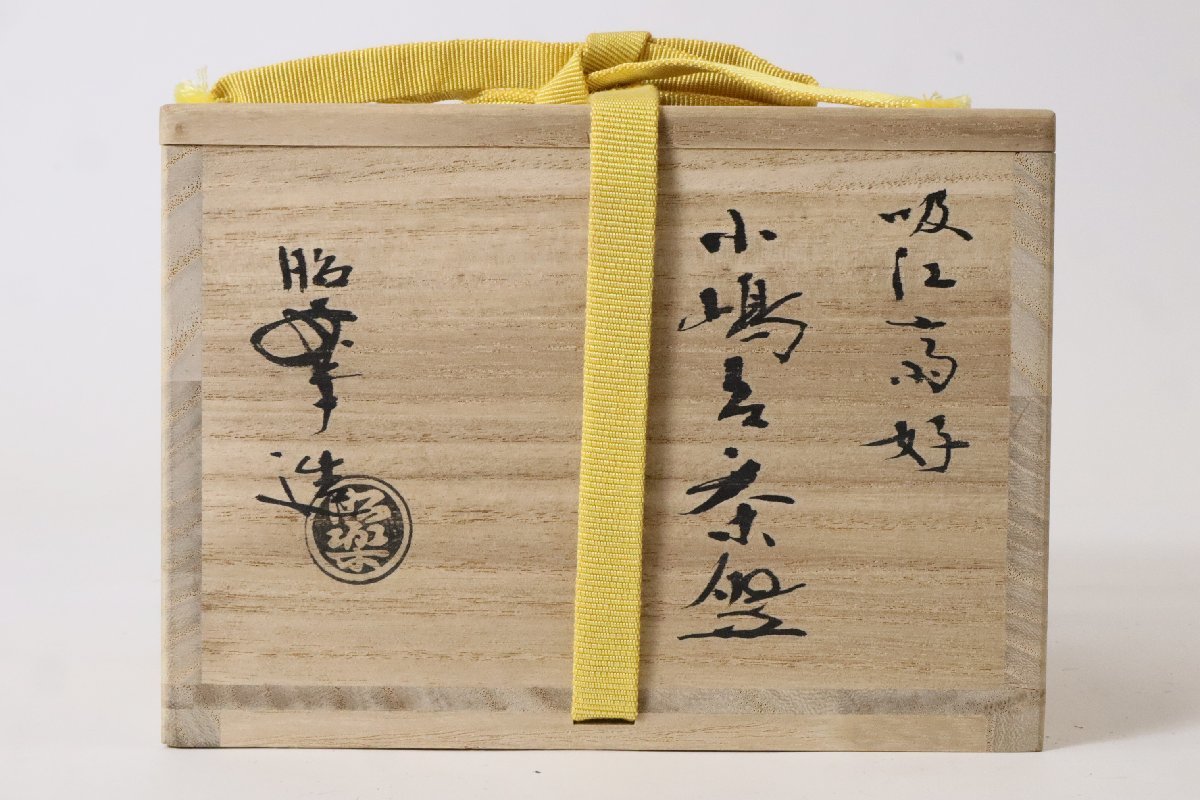 吸江斎好
小嶋台茶盌
昭楽造
昭楽